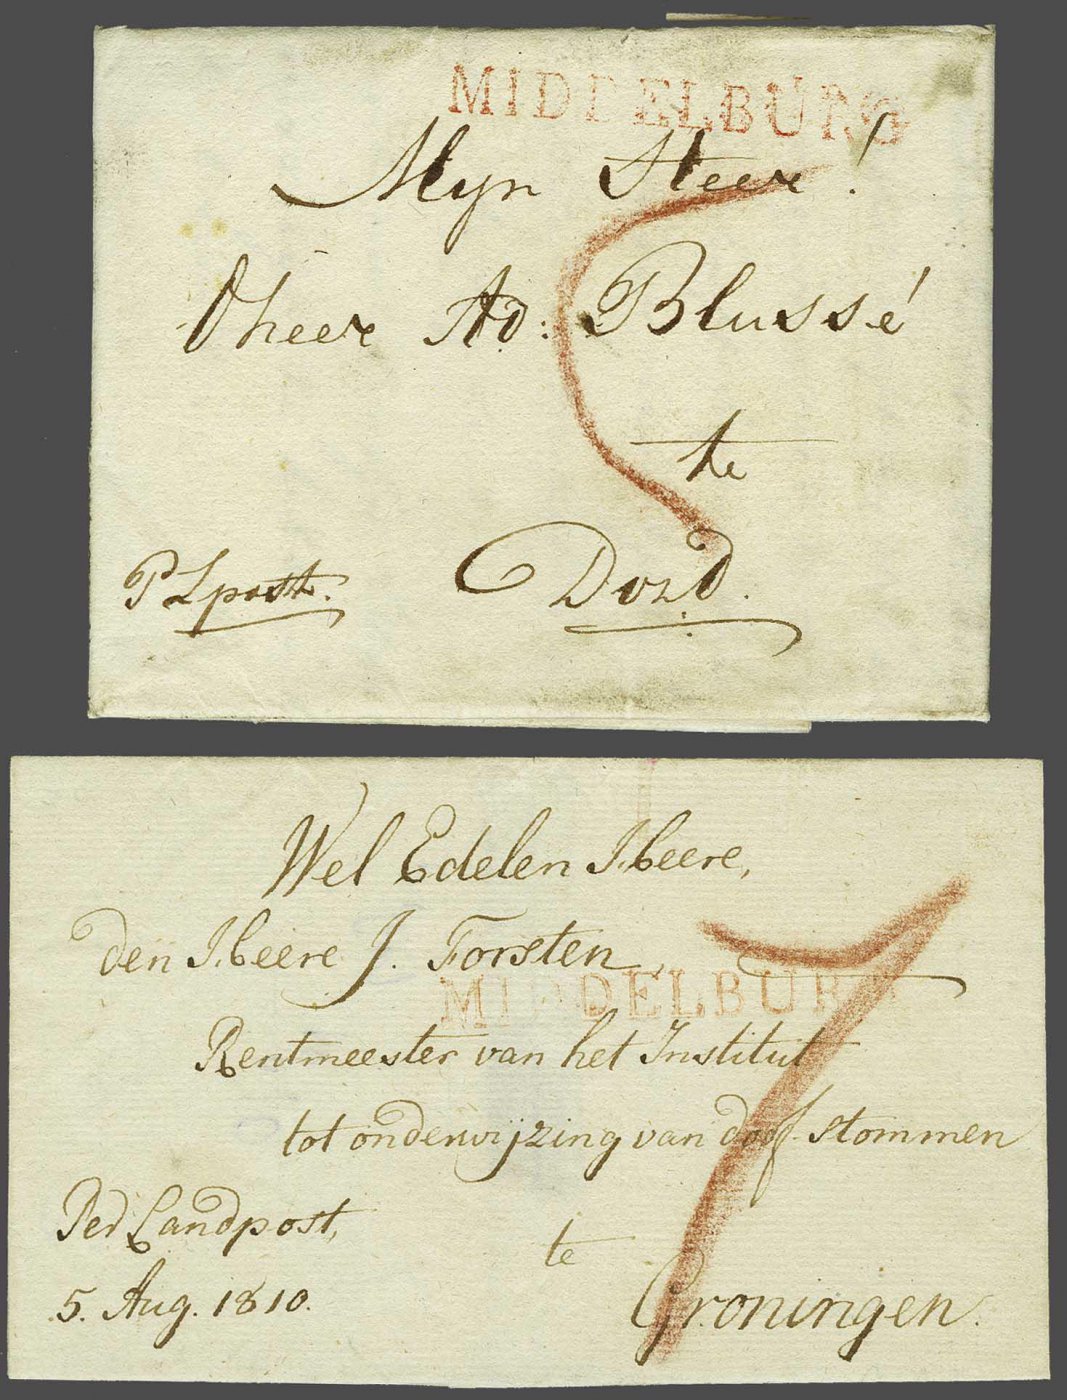 MIDDELBURG
Mijn Heer!
Dheer Ad: Blussé
te
P Lpost.
Dord.
5
Wel Edelen Heere,
den Heere J. Forsten
MIDDELBURG
7
Rentmeester van het Instituut
tot onderwijzing van doof-stommen
Per Landpost,
te
5. Aug. 1810.
Groningen.